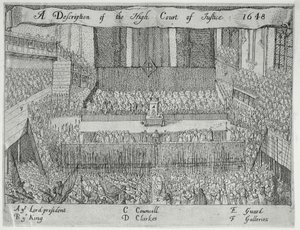 A Description of the High Court of Justice 1648
A yͤ Lord president C Councell E Guard
B yͤ King D Clarkes F Galleries